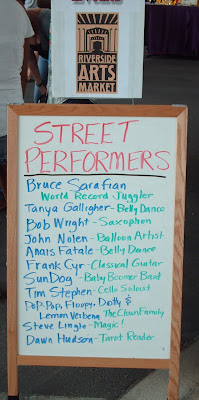 RIVERSIDE
ARTS
MARKET
STREET
PERFORMERS
Bruce Sarafian
World Record Juggler
Tanya Galligher - Belly Dance
Bob Wright - Saxophon
John Nolen - Balloon Artist
Anais Fatale - Belly Dance
Frank Cyr - Classical Guitar
SunDog - Baby Boomer Band
Tim Stephen - Cello Soloist
Pop-Pop, Floppy, Dotty &
Lemon Verbena The Clown Family
Steve Lingle - Magic!
Dawn Hudson - Tarot Reader